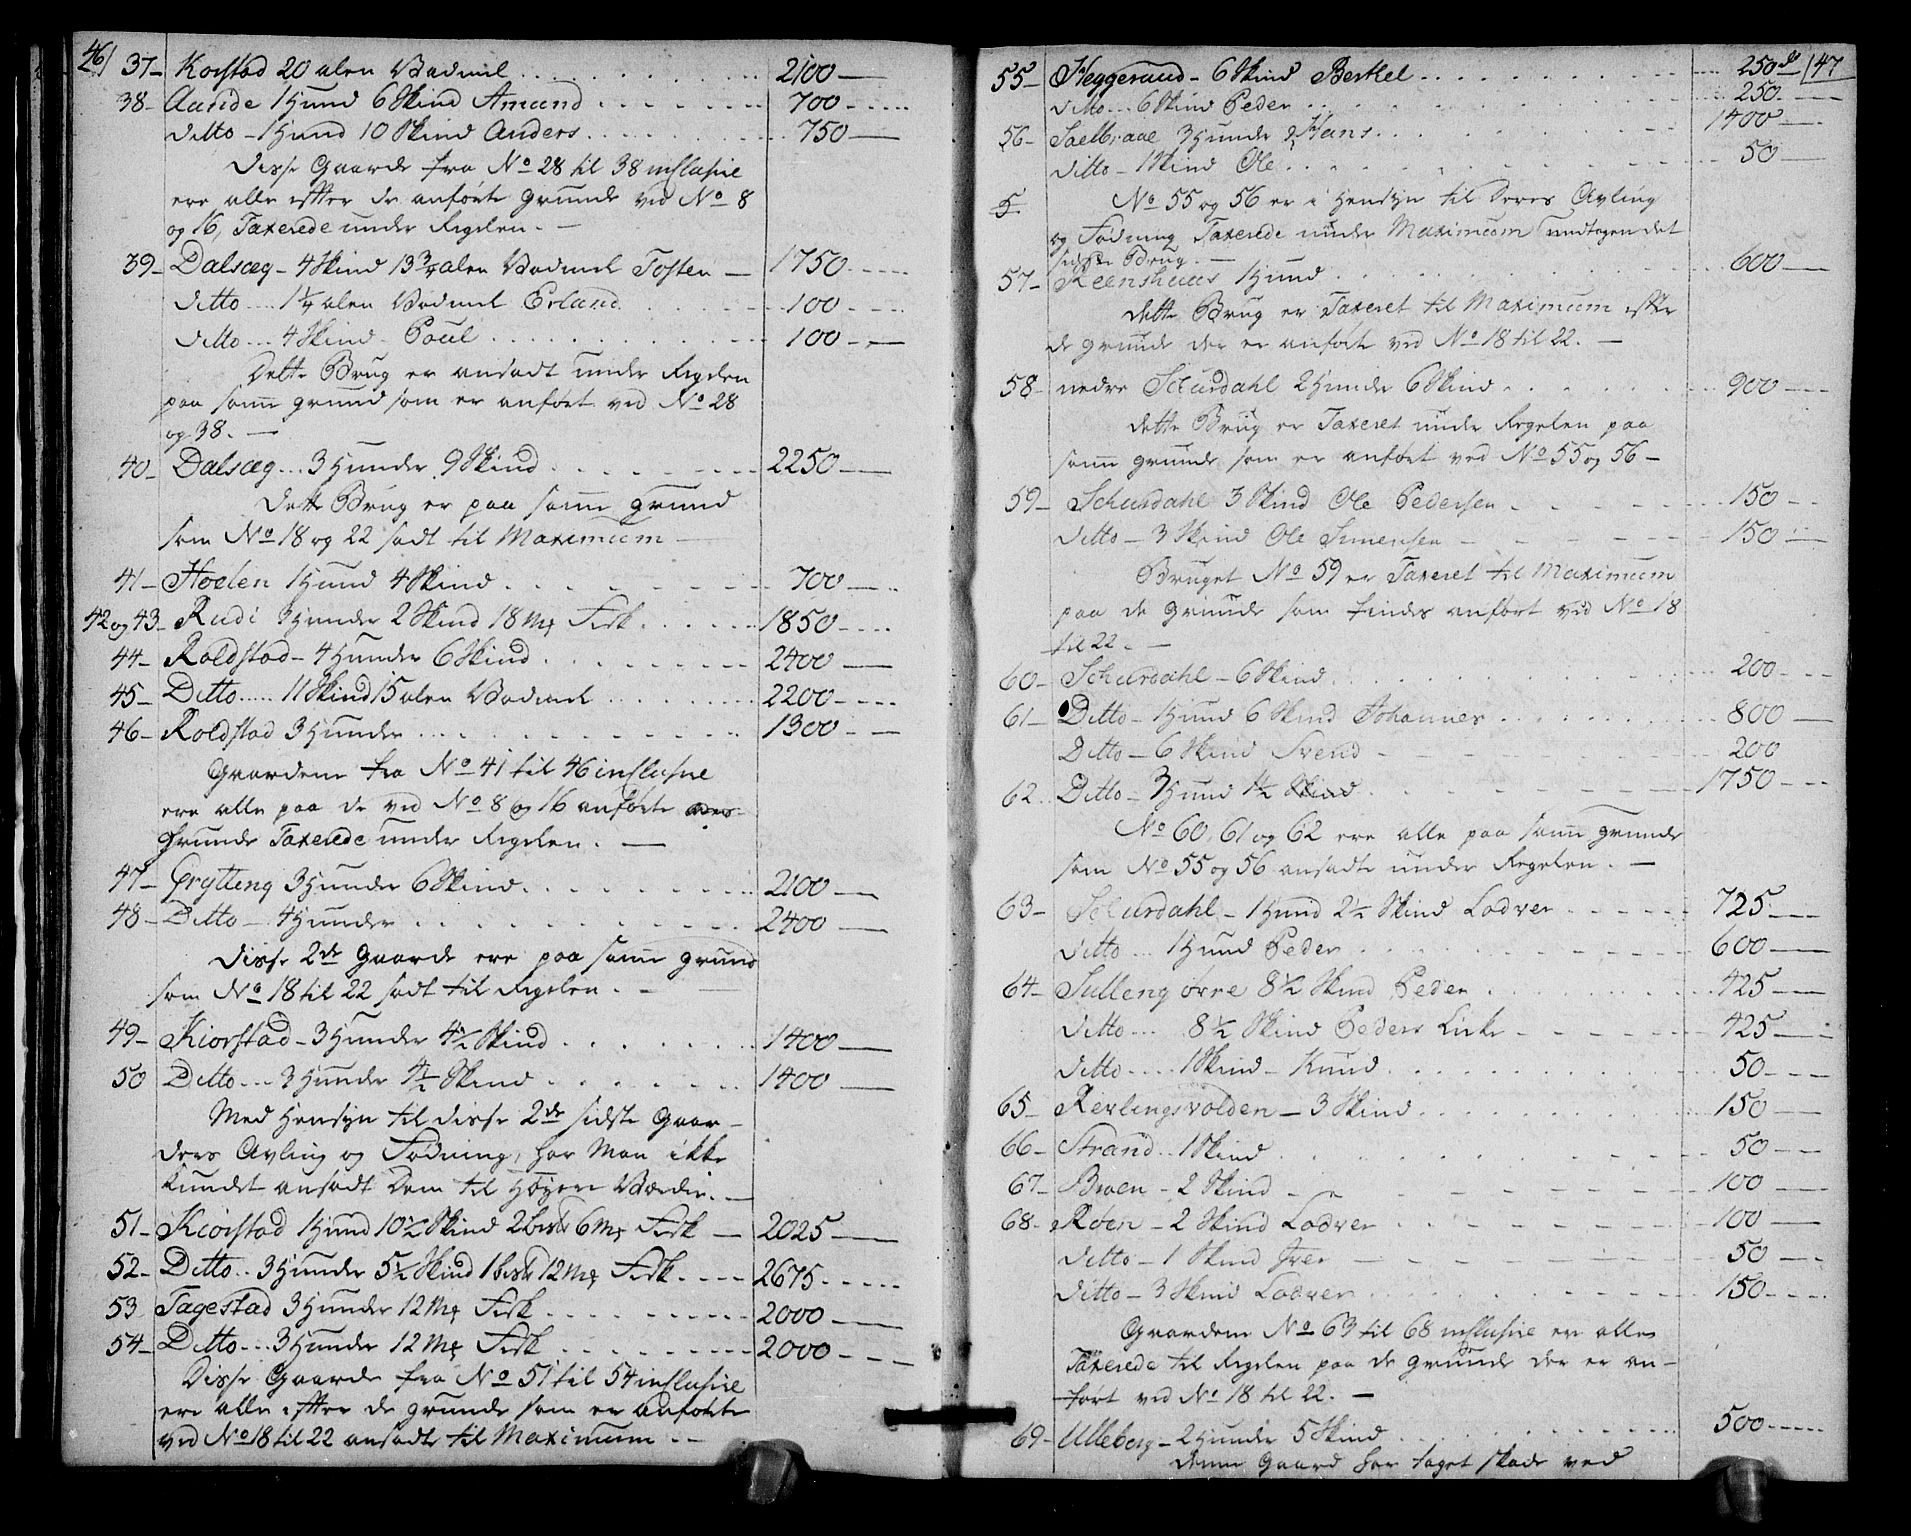 46
37 - Korstad 20 alen Vadmel . . . 2100 -
38 - Aande 1 Hund 6 Skind Amund . . . 700 -
ditto - 1 Hund 10 Skind Anders . . . 750 -
Disse Gaarde fra No 28 til 38 inclusive
ere alle efter de anførte Grunde ved No 8
og 16, Taxerede under Regelen. -
39 - Dalsæg - 4 Skind 13 3/4 alen Vadmel Tosten - 1750 -
ditto . . . 1 1/4 alen Vadmel Erland . . . 100 -
ditto . . . 4 Skind - Poul . . . 100 -
Dette Brug er ansadt under Regelen
paa samme grund som er anført ved No 28
og 38. -
40 - Dalsæg . . . 3 Hunder 9 Skind . . . 2250 -
dette Brug er paa samme grund
som No 18 og 22 sadt til Maximum -
41 - Hoelen 1 Hund 4 Skind . . . 700 -
42 og 43 - Rudi 3 Hunder 2 Skind 18 Mk Fisk . . . 1850 -
44 - Roldstad - 4 Hunder 6 Skind . . . 2400 -
45 - Ditto . . . 11 Skind 15 alen Vadmel . . . 2200 -
46 - Roldstad 3 Hunder . . . 1300 -
Gaardene fra No 41 til 46 inclusive
ere alle paa de ved No 8 og 16 anførte
Grunde Taxerede under Regelen. -
47 - Grytteng 3 Hunder 6 Skind . . . 2100 -
48 - Ditto - 4 Hunder . . . 2400 -
disse 2de Gaarde ere paa samme grund
som No 18 til 22 sadt til Regelen. -
49 - Kiorstad - 3 Hunder 4 1/2 Skind . . . 1400 -
50 Ditto . . . 3 Hunder 4 1/2 Skind . . . 1400 -
Med Hensyn til disse 2de sidste Gaar-
ders Avling og Fødning, har man ikke
kundet ansadt dem til Høyere Værdie. -
51 - Kiørstad 1 Hund 10 1/2 Skind 2 6 Mk Fisk - 2025 -
52 - Ditto . . 3 Hunder 5 1/2 Skind 1 12 Mk Fisk . . . 2675 -
53 Tagestad 3 Hunder 12 Mk Fisk . . . 2000 -
54 - Ditto . . . 3 Hunder 12 Mk Fisk . . . 2000 -
Disse Gaarde fra No 51 til 54 inclusive
ere alle efter de grunde som er anførte
ved No 18 til 22 ansadte til Maximum. -
47
55 - Heggerund - 6 Skind Berthel . . . 250 d
ditto . . . 6 Skind Peder . . . 250 -
56 - Saelbraae 3 Hunder Hans . . . 1400 -
ditto - 1 Skind Ole . . . 50 -
No 55 og 56 er i Hensyn til deres Avling
og Fødning Taxerede under Maximum undtagen det
sidste Brug. -
57 - Reenshuus 1 Hund . . . 600 -
dette Brug er Taxeret til Maximum efter
de grunde der er anført ved No 18 til 22. -
58 - nedre Schurdahl 2 Hunder 6 Skind . . . 900 -
dette Brug er Taxeret under Regelen paa
samme grunde som er anført ved No 55 og 56 -
59 - Schurdahl 3 Skind Ole Pedersen . . . 150 -
ditto - 3 Skind Ole Simensen - 150 -
Bruget No 59 er Taxeret til Maximum
paa de Grunde som findes anført ved No 18
til 22. -
60 - Schurdahl - 6 Skind . . . 200 -
61 - Ditto - 1 Hund 6 Skind Johannes . . . 800 -
Ditto - 6 Skind Svend - 200
62 . Ditto - 3 Hund 1 1/2 Skind . . . 1750 -
No 60, 61 og 62 ere alle paa samme grunde
som No 55 og 56 ansadte under Regelen. -
63 - Schurdahl - 1 Hund 2 1/2 Skind Lodver . . . 725 -
ditto . . . 1 Hund Peder . . . 600 -
64 - Sulleng øvre 8 1/2 Skind Peder . . . 425 -
ditto . . . 8 1/2 Skind Peders Encke - 425 -
ditto . . . 1 Skind - Knud . . . 50 -
65 - Kerlingsvolden - 3 Skind . . . 150 -
66 - Strand . . 1 Skind . . . 50 -
67 - Broen - 2 Skind . . . 100 -
68 - Røen - 2 Skind Lodver . . . 100 -
ditto - 1 Skind Iver - 50 -
ditto - 3 Skind Lodver . . . 150 -
Gaardene No 63 til 68 inclusive er alle
Taxerede til Regelen paa de grunde der er an-
ført ved No 18 til 22. -
69 - Ulleberg - 2 Hunder 5 Skind . . . 500 -
denne Gaard har taget skade ved